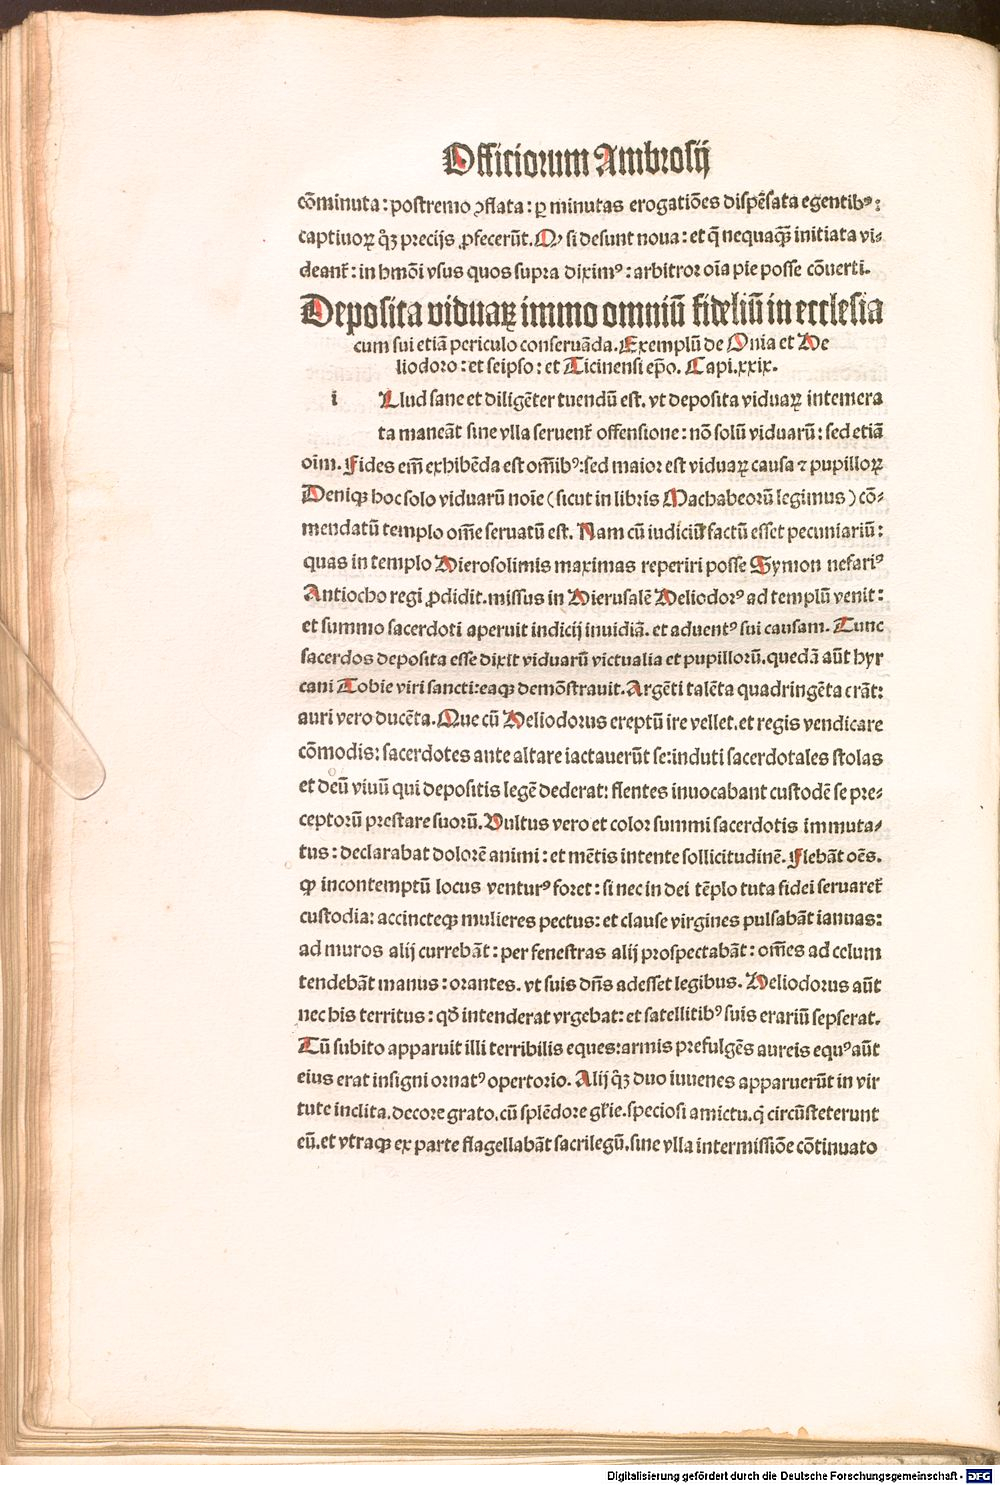 Officiorum Ambrosij
cōminuta: postremo ꝯflata: ꝑ minutas erogatiões dispēsata egentibꝰ:
captiuoꝝ q̈ꝫ precijs ꝓfecerūt. Qꝫ si desunt noua: et q̄ nequaq̄ꝫ initiata vi⸗
deant᷑: in hmōi vsus quos supra diximꝰ: arbitror oīa pie posse cōuerti.
Deposita viduaꝝ immo omniū fideliū in ecclesia
cum sui etiā periculo conseruāda. Exemplū de Onia et He
liodoro: et seipso: et Ticinensi ep̄o. Capi.xxix.
i Llud sane et diligēter tuendū est. vt deposita viduaꝝ intemera
ta maneāt sine vlla seruent᷑ offensione: nō solū viduarū: sed etiā
oīm. Fides em̄ exhibēda est om̄ibꝰ: sed maior est viduaꝝ causa ⁊ pupilloꝝ
Deniqꝫ hoc solo viduarū noīe (sicut in libris Machabeorū legimus) cō⸗
mendatū templo om̄e seruatū est. Nam cū iudiciū factū esset pecuniariū:
quas in templo Hierosolimis maximas reperiri posse Symon nefariꝰ
Antiocho regi ꝓdidit. missus in Hierusalē Heliodorꝰ ad templū venit:
et summo sacerdoti aperuit indicij inuidiā. et aduentꝰ sui causam. Tunc
sacerdos deposita esse dixit viduarū victualia et pupillorū. quedā aūt hyr
cani Tobie viri sancti: eaqꝫ demōstrauit. Argēti talēta quadringēta erāt:
auri vero ducēta. Que cū Heliodorus ereptū ire vellet. et regis vendicare
cōmodis: sacerdotes ante altare iactauerūt se: induti sacerdotales stolas
et deū viuū qui depositis legē dederat: flentes inuocabant custodē se pre⸗
ceptorū prestare suorū. Vultus vero et color summi sacerdotis immuta⸗
tus: declarabat dolorē animi: et mētis intente sollicitudinē. Flebāt oēs.
qꝫ incontemptū locus venturꝰ foret: si nec in dei tēplo tuta fidei seruaret᷑
custodia: accincteqꝫ mulieres pectus: et clause virgines pulsabāt ianuas:
ad muros alij currebāt: per fenestras alij prospectabāt: om̄es ad celum
tendebāt manus: orantes. vt suis dn̄s adesset legibus. Heliodorus aūt
nec his territus: qd̄ intenderat vrgebat: et satellitibꝰ suis erariū sepserat.
Tū subito apparuit illi terribilis eques: armis prefulgēs aureis equꝰ aūt
eius erat insigni ornatꝰ opertorio. Alij q̈ꝫ duo iuuenes apparuerūt in vir
tute inclita. decore grato. cū splēdore gl̄ie. speciosi amictu. q̄ circūsteterunt
eū. et vtraqꝫ ex parte flagellabāt sacrilegū. sine vlla intermissiōe cōtinuato
Digitalisierung gefördert durch die Deutsche Forschungsgemeinschaft - DFG